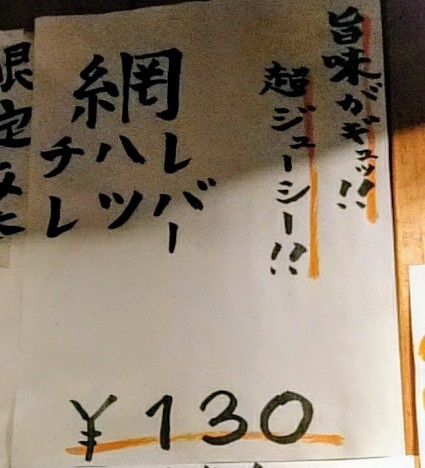 旨味がギュッ!!
超ジューシー!!
網
レバー
ハツ
チレ
¥130
限定